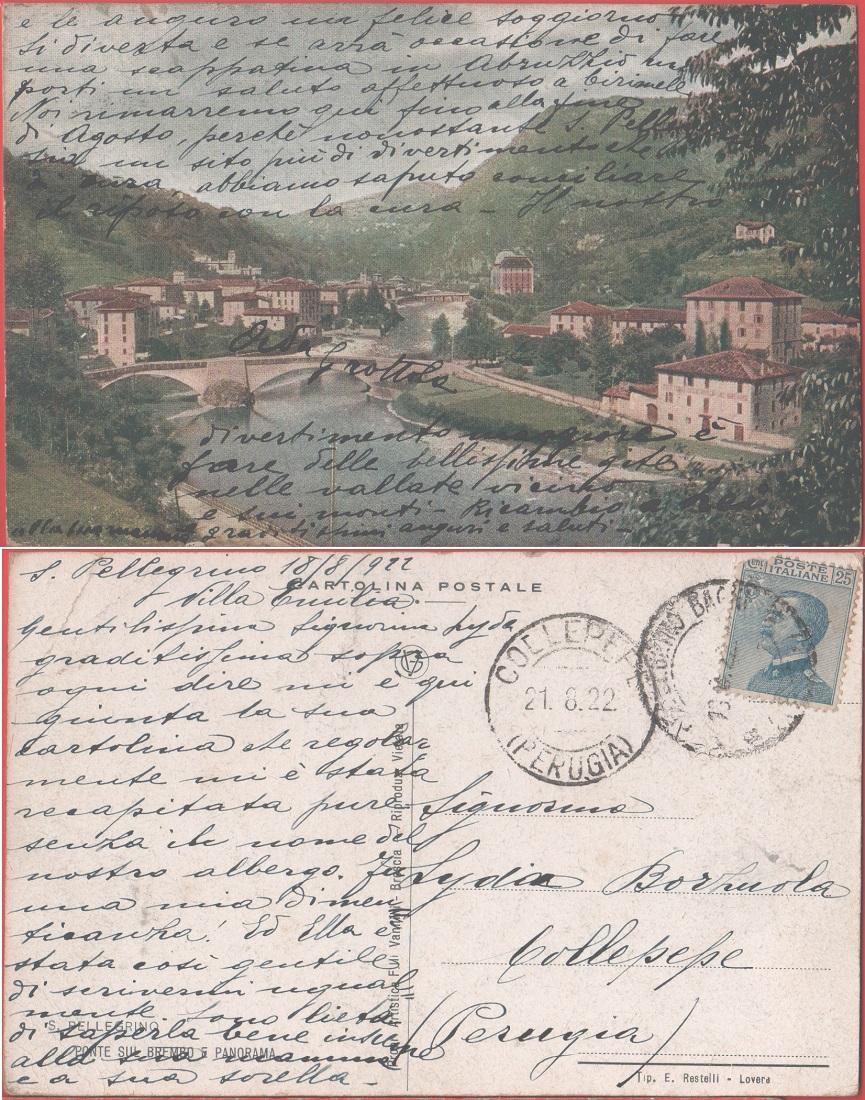 e le auguro un felice soggiorno
si diverta e se avrà occasione di fare
una scappatina in Abruzzo mi
porti un saluto affettuoso a
Noi rimarremo qui fino alla fine
di Agosto, perchè nonostante S. Pelle
sia un sito più di divertimento che
di cura abbiamo saputo conciliare
il riposo con la cura - Il nostro
Grottola
divertimento maggiore è
fare delle bellissime gite
nelle vallate vicine
e sui monti - Ricambio a Lei
alla sua mamma graditissimi auguri e saluti -
S. Pellegrino 18/8/922
CARTOLINA POSTALE
Villa Emilia -
POSTE ITALIANE 25
COLLEPEPE
21.8.22
(PERUGIA)
Gentilissima Signorina Lyda
graditissima sopra
ogni dire mi è qui
giunta la sua
cartolina che regolar
mente mi è stata
recapitata pure
senza il nome del
nostro albergo. Fu
una mia dimen
ticanza! Ed Ella è
stata così gentile
di scrivermi ugual
mente. Sono lieta
di saperla bene insieme
alla sua mamma
e a sua sorella -
S. PELLEGRINO
PONTE SUL BREMBO E PANORAMA
Signorina
Lydia Borzuola
Collepepe
(Perugia)
Tip. E. Restelli - Lovere